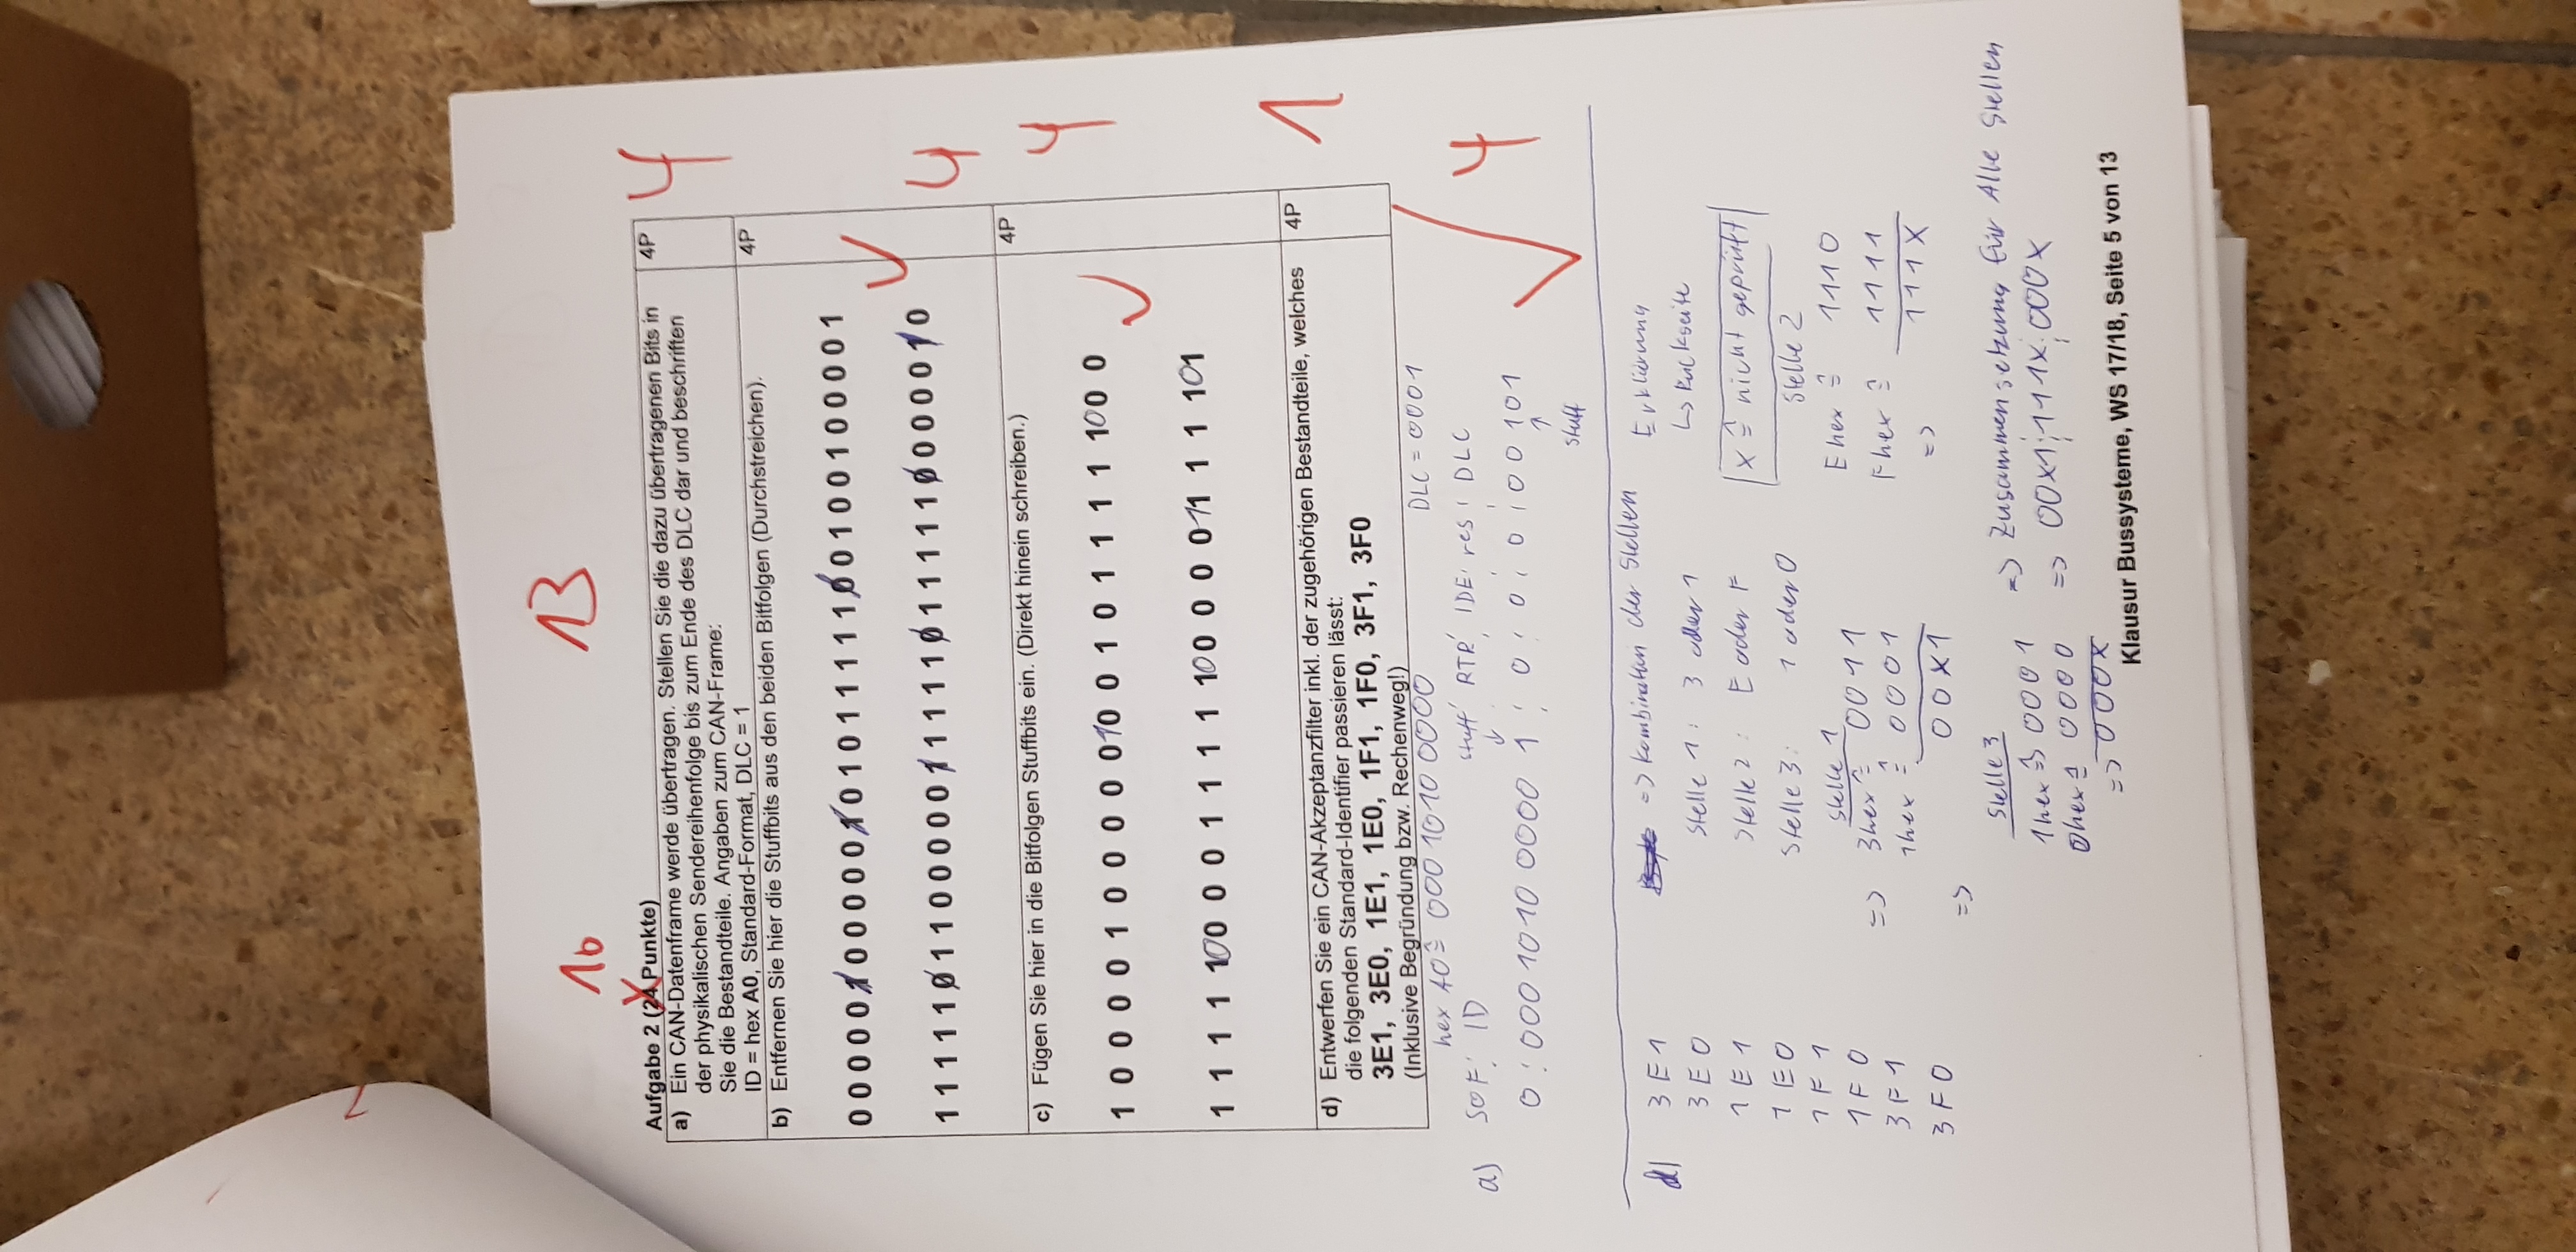 16
13
Aufgabe 2 (24 Punkte)
a) Ein CAN-Datenframe werde übertragen. Stellen Sie die dazu übertragenen Bits in 4P 4
der physikalischen Sendereihenfolge bis zum Ende des DLC dar und beschriften
Sie die Bestandteile. Angaben zum CAN-Frame:
ID = hex A0, Standard-Format, DLC = 1
b) Entfernen Sie hier die Stuffbits aus den beiden Bitfolgen (Durchstreichen). 4P
0 0 0 0 0 1 0 0 0 0 0 1 0 1 0 1 1 1 1 1 0 0 1 0 0 1 0 0 0 0 1
1 1 1 1 1 0 1 1 0 0 0 0 0 1 1 1 1 1 0 1 1 1 1 1 0 0 0 0 0 1 0 4
c) Fügen Sie hier in die Bitfolgen Stuffbits ein. (Direkt hinein schreiben.) 4P
1 0 0 0 0 1 0 0 0 0 0 1 0 0 1 0 1 1 1 1 1 0 0 0 4
1 1 1 1 1 0 0 0 0 1 1 1 1 1 0 0 0 0 0 1 1 1 1 1 0 1
d) Entwerfen Sie ein CAN-Akzeptanzfilter inkl. der zugehörigen Bestandteile, welches 4P 1
die folgenden Standard-Identifier passieren lässt:
3E1, 3E0, 1E1, 1E0, 1F1, 1F0, 3F1, 3F0
(Inklusive Begründung bzw. Rechenweg!)
hex A0 ≙ 000 1010 0000 DLC = 0001
a) SOF ¦ ID stuff ¦ RTR ¦ IDE ¦ res ¦ DLC
0 ¦ 000 1010 0000 1 ¦ 0 ¦ 0 ¦ 0 ¦ 00101 4
stuff
d) 3 E 1 => Kombination der Stellen Erklärung
3 E 0 Stelle 1: 3 oder 1 ↳ Rückseite
1 E 1 Stelle 2: E oder F x ≙ nicht geprüft
1 E 0 Stelle 3: 1 oder 0 Stelle 2
1 F 1 Stelle 1 E hex ≙ 1110
1 F 0 => 3hex ≙ 0011 F hex ≙ 1111
3 F 1 1hex ≙ 0001 => 111X
3 F 0 => 00X1
Stelle 3 => Zusammensetzung für Alle Stellen
1hex ≙ 0001 => 00X1 ¦ 111X ¦ 000X
0hex ≙ 0000
=> 000X
Klausur Bussysteme, WS 17/18, Seite 5 von 13